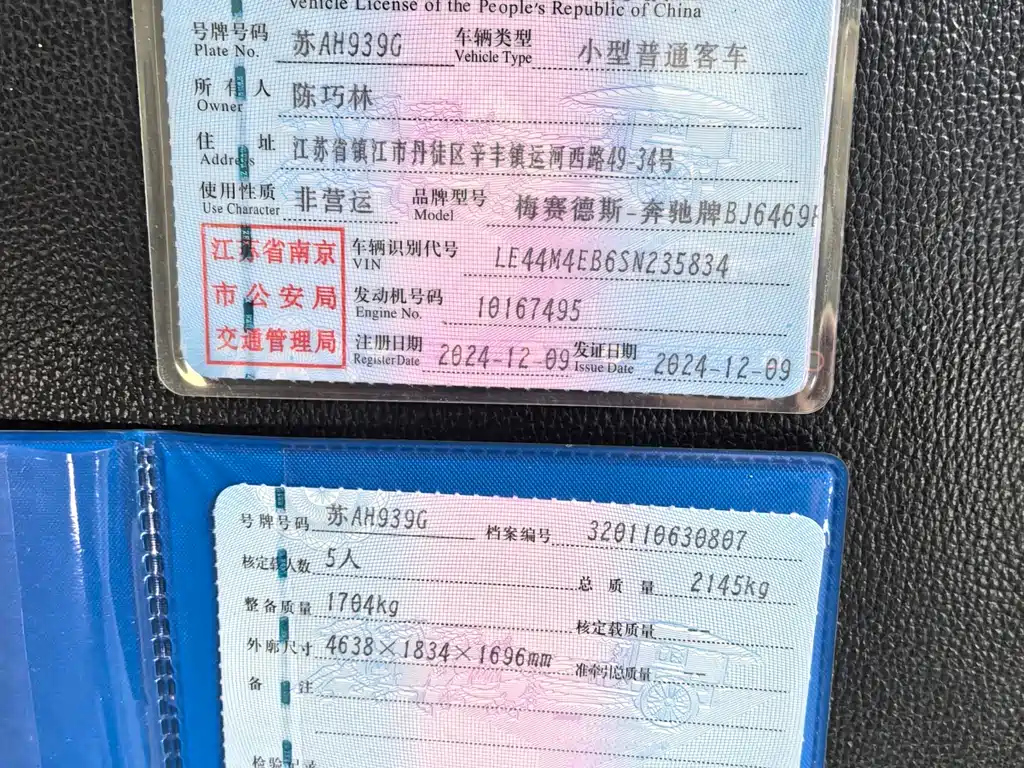 Vehicle License of the People's Republic of China
号牌号码 苏AH939G 车辆类型 小型普通客车
Plate No. Vehicle Type
所有人 陈巧林
Owner
住址 江苏省镇江市丹徒区辛丰镇运河西路49-34号
Address
使用性质 非营运 品牌型号 梅赛德斯-奔驰牌BJ6469
Use Character Model
江苏省南京 车辆识别代号 LE44M4EB6SN235834
VIN
市公安局 发动机号码 10167495
Engine No.
交通管理局 注册日期 2024-12-09 发证日期 2024-12-09
Register Date Issue Date
号牌号码 苏AH939G 档案编号 320110630807
核定载人数 5人 总质量 2145kg
整备质量 1704kg 核定载质量 --
外廓尺寸 4638×1834×1696mm 准牵引总质量 --
备注
检验记录